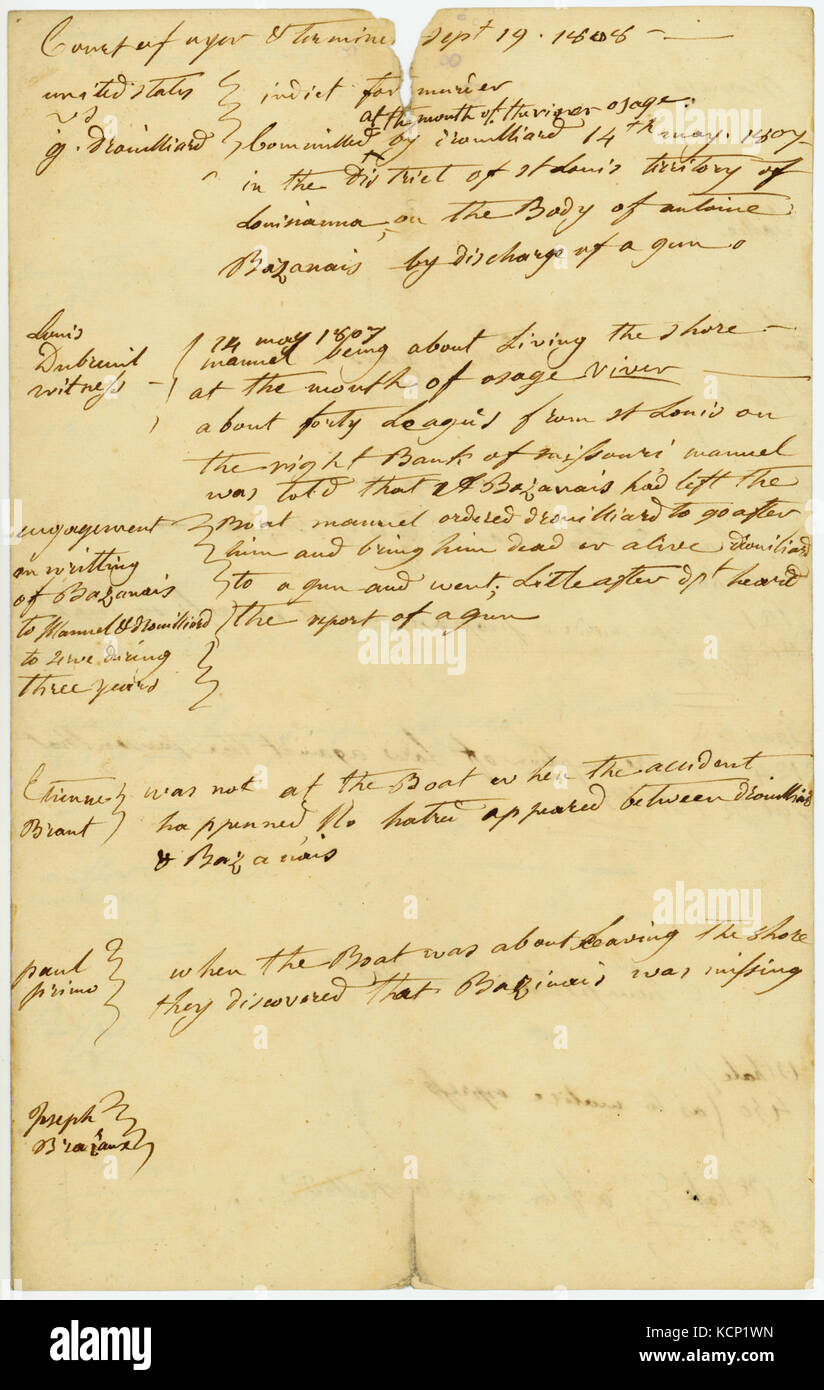 Court of oyer & terminer Sept 19. 1808 —
united states } indict for murder
vs
at the mouth of the river osage.
g. Drouilliard } Committed by Drouilliard 14th may. 1807
in the District of st Louis territory of
Louisianna, on the Body of antoine
Bazanais by discharge of a gun
Louis
Dubreuil
witness —
14 may 1807
manuel being about Living the shore —
at the mouth of osage river —
about forty Leagues from st Louis on
the right Bank of missouri manuel
was told that A Bazanais had left the
Boat manuel ordered drouilliard to go after
him and bring him dead or alive drouilliard
to a gun and went; Little after Dt heard
the report of a gun
engagement
in writting
of Bazanais
to Manuel & drouilliard
to serve during
three years
Etienne } was not at the Boat when the accident
Brant } happenned, No hatred appeared between drouilliard
& Bazanais
paul
primo
when the Boat was about Leaving The shore
they discovered that Bazinais was missing
Joseph
alamy
alamy
alamy
a
alamy
Image ID: KCP1WN
www.alamy.com